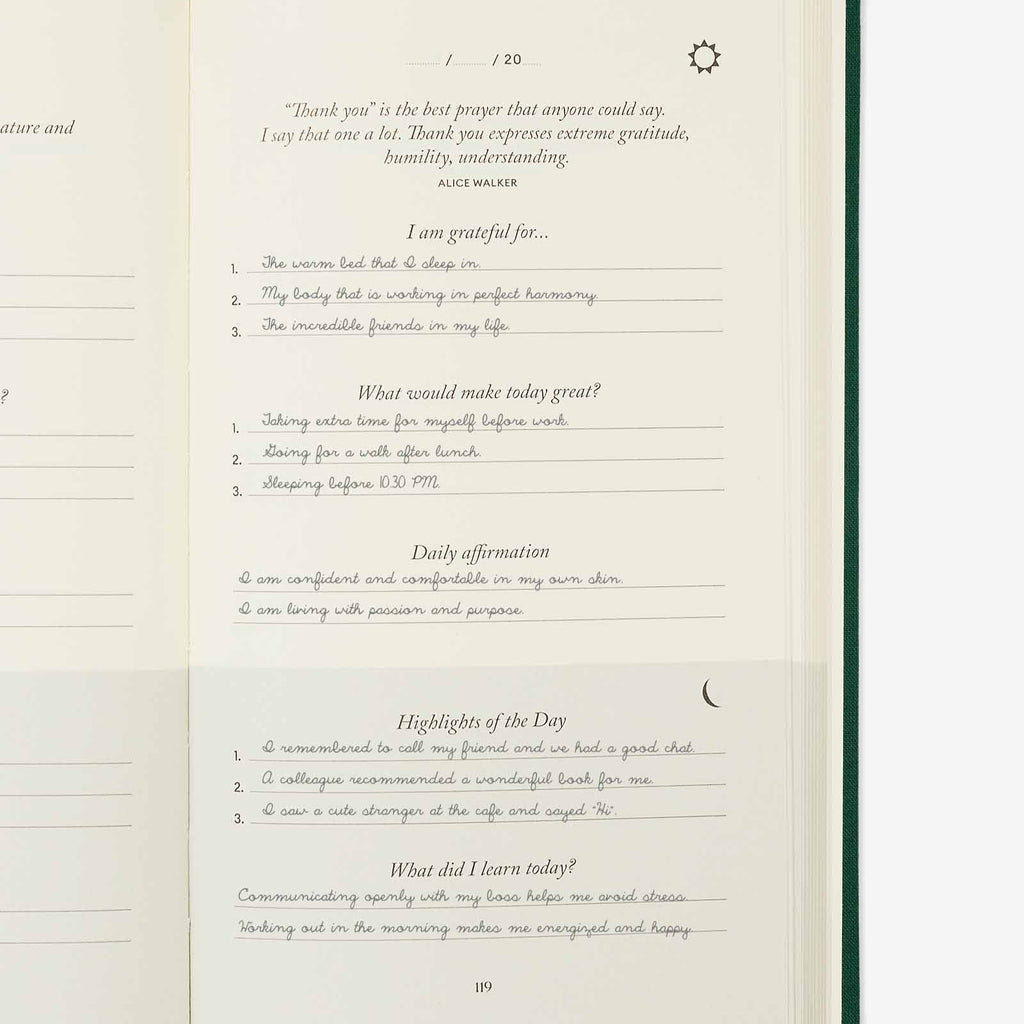 ature and
?
/ / 20
“Thank you” is the best prayer that anyone could say.
I say that one a lot. Thank you expresses extreme gratitude,
humility, understanding.
ALICE WALKER
I am grateful for...
1. The warm bed that I sleep in.
2. My body that is working in perfect harmony.
3. The incredible friends in my life.
What would make today great?
1. Taking extra time for myself before work.
2. Going for a walk after lunch.
3. Sleeping before 10.30 PM.
Daily affirmation
I am confident and comfortable in my own skin.
I am living with passion and purpose.
Highlights of the Day
1. I remembered to call my friend and we had a good chat.
2. A colleague recommended a wonderful book for me.
3. I saw a cute stranger at the cafe and sayed "Hi".
What did I learn today?
Communicating openly with my boss helps me avoid stress.
Working out in the morning makes me energized and happy.
119